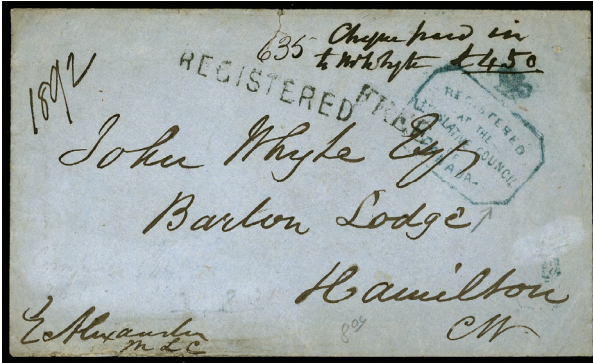 635 Cheque paid in
to Mr Whyte £450
1892
REGISTERED
FREE
REGISTERED
AT THE
LEGISLATIVE COUNCIL
CANADA
John Whyte Esq
Barton Lodge
Hamilton
CW
E Alexander
MLC